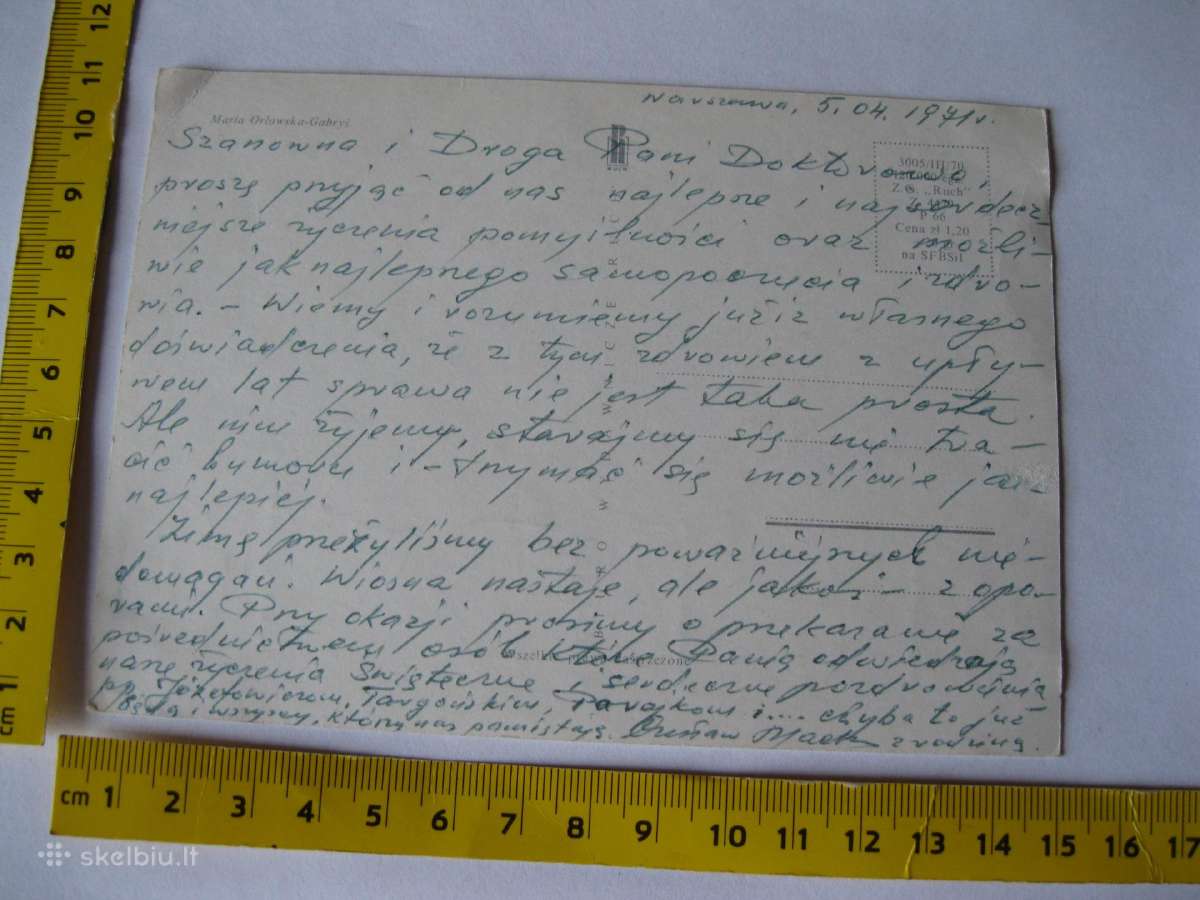 Warszawa, 5.04.1971r.
Maria Orłowska-Gabryś
Szanowna i Droga Pani Doktorowo,
proszę przyjąć od nas najlepsze i najserdecz
niejsze życzenia pomyślności oraz możli-
wie jaknajlepszego samopoczucia i zdro-
wia. - Wiemy i rozumiemy już iż własnego
doświadczenia, że z tym zdrowiem z upły-
wem lat sprawa nie jest taka prosta.
Ale nim żyjemy, starajmy się nie tra-
cić humoru i - trzymać się możliwie jak-
najlepiej.
Zimę przeżyliśmy bez poważniejszych nie-
domagań. Wiosna nastaje, ale jakoś - z opo-
rami. Przy okazji prosimy o przekazanie za
pośrednictwem osób które Panią odwiedzają
nasze życzenia Świąteczne i serdeczne pozdrowienia
pp. Józefowiczom, Targońskim, i.... chyba to już
będą i wszyscy, którzy nas pamiętają. z rodziną.
RUCH
3005/III/70
Z.G. „Ruch"
P 66
Cena zł 1,20
na SFBSiI
Wszelkie zastrzeżone
cm 1 2 3 4 5 6 7 8 9 10 11 12
cm 1 2 3 4 5 6 7 8 9 10 11 12 13 14 15 16 17
skelbiu.lt